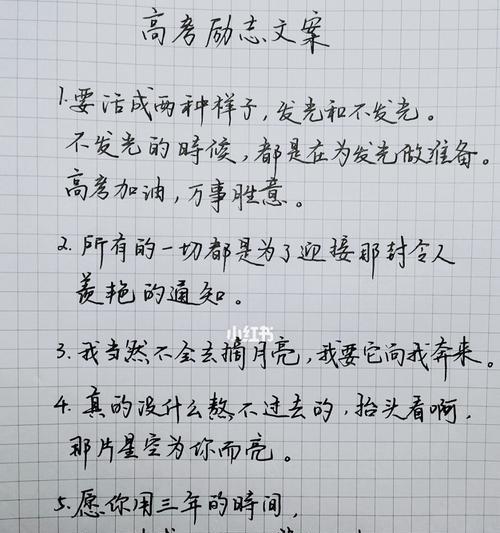 高考励志文案
1.要活成两种样子,发光和不发光。
不发光的時候,都是在为发光做准备。
高考加油,万事胜意。
2.所有的一切都是为了迎接那封令人
羡艳的通知。
小红书
3.我当然不会去摘月亮,我要它向我奔来。
4.真的没什么熬不过去的,抬头看啊,
那片星空为你而亮。
5.愿你用三年的时间,